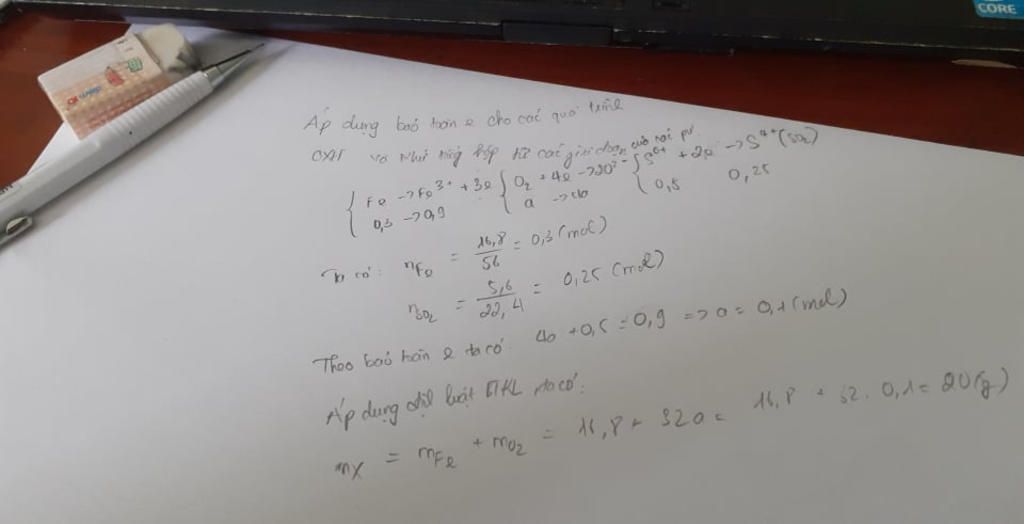 CORE
Áp dụng bảo toàn e cho các quá trình
OXH và khử tổng hợp từ các giai đoạn của các pư.
{ Fe → Fe³⁺ + 3e { O₂ + 4e → 2O²⁻ { S⁶⁺ + 2e → S⁴⁺ (SO₂)
0,3 → 0,9 a → 4a 0,5 0,25
Ta có: nFe = 16,8/56 = 0,3 (mol)
nSO₂ = 5,6/22,4 = 0,25 (mol)
Theo bảo toàn e ta có: 4a + 0,5 = 0,9 => a = 0,1 (mol)
Áp dụng định luật BTKL, ta có:
mX = mFe + mO₂ = 16,8 + 32a = 16,8 + 32. 0,1 = 20 (g)